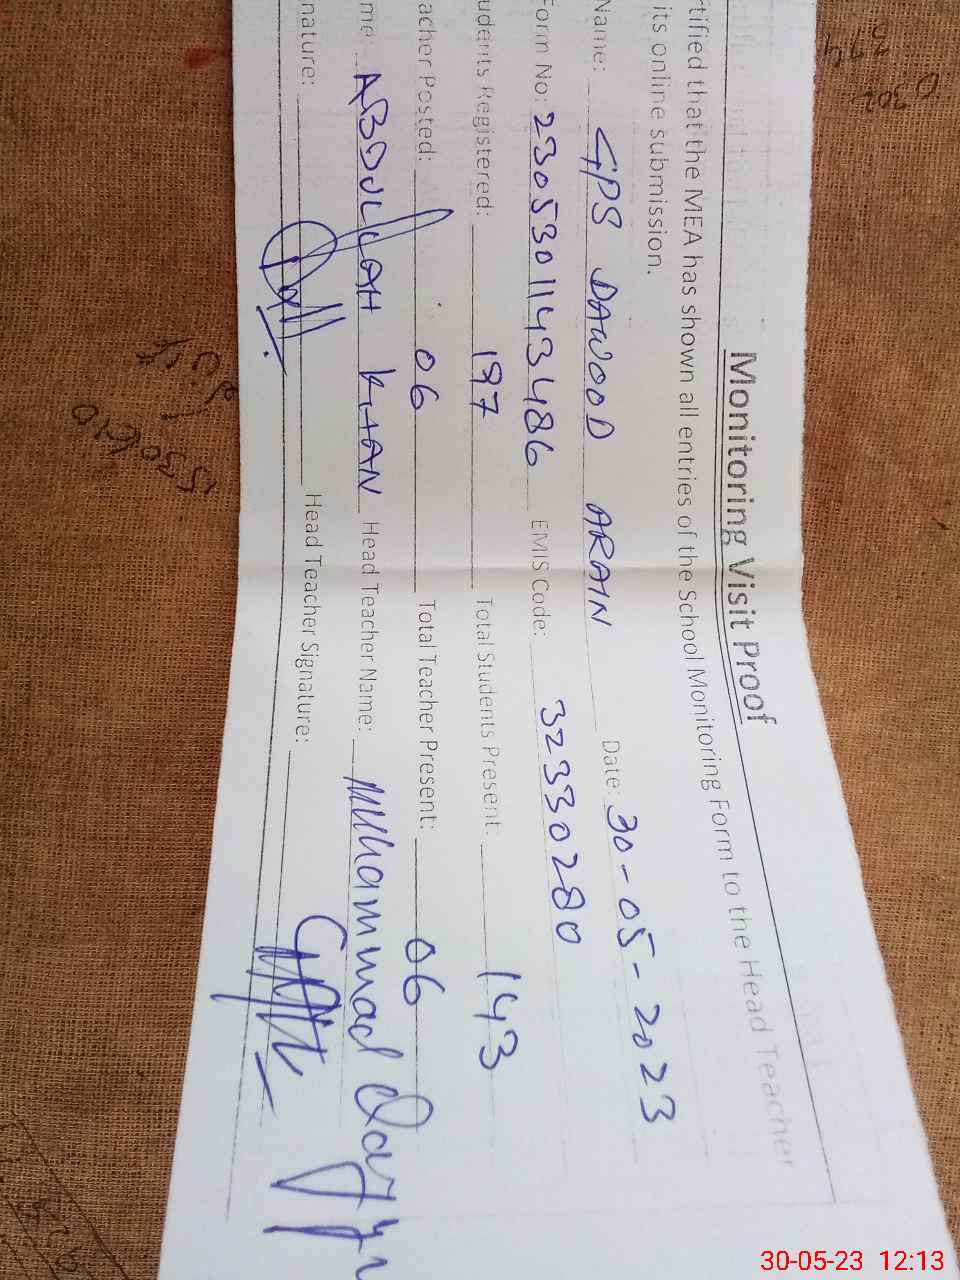 Monitoring Visit Proof
rtified that the MEA has shown all entries of the School Monitoring Form to the Head Teacher
its online submission.
Name: GPS DAWOOD ARAIN Date: 30-05-2023
Form No: 2305301143486 EMIS Code: 32330280
udents Registered: 197 Total Students Present: 143
acher Posted: 06 Total Teacher Present: 06
me: ABDULLAH KHAN Head Teacher Name: Muhammad
nature: Head Teacher Signature:
30-05-23 12:13